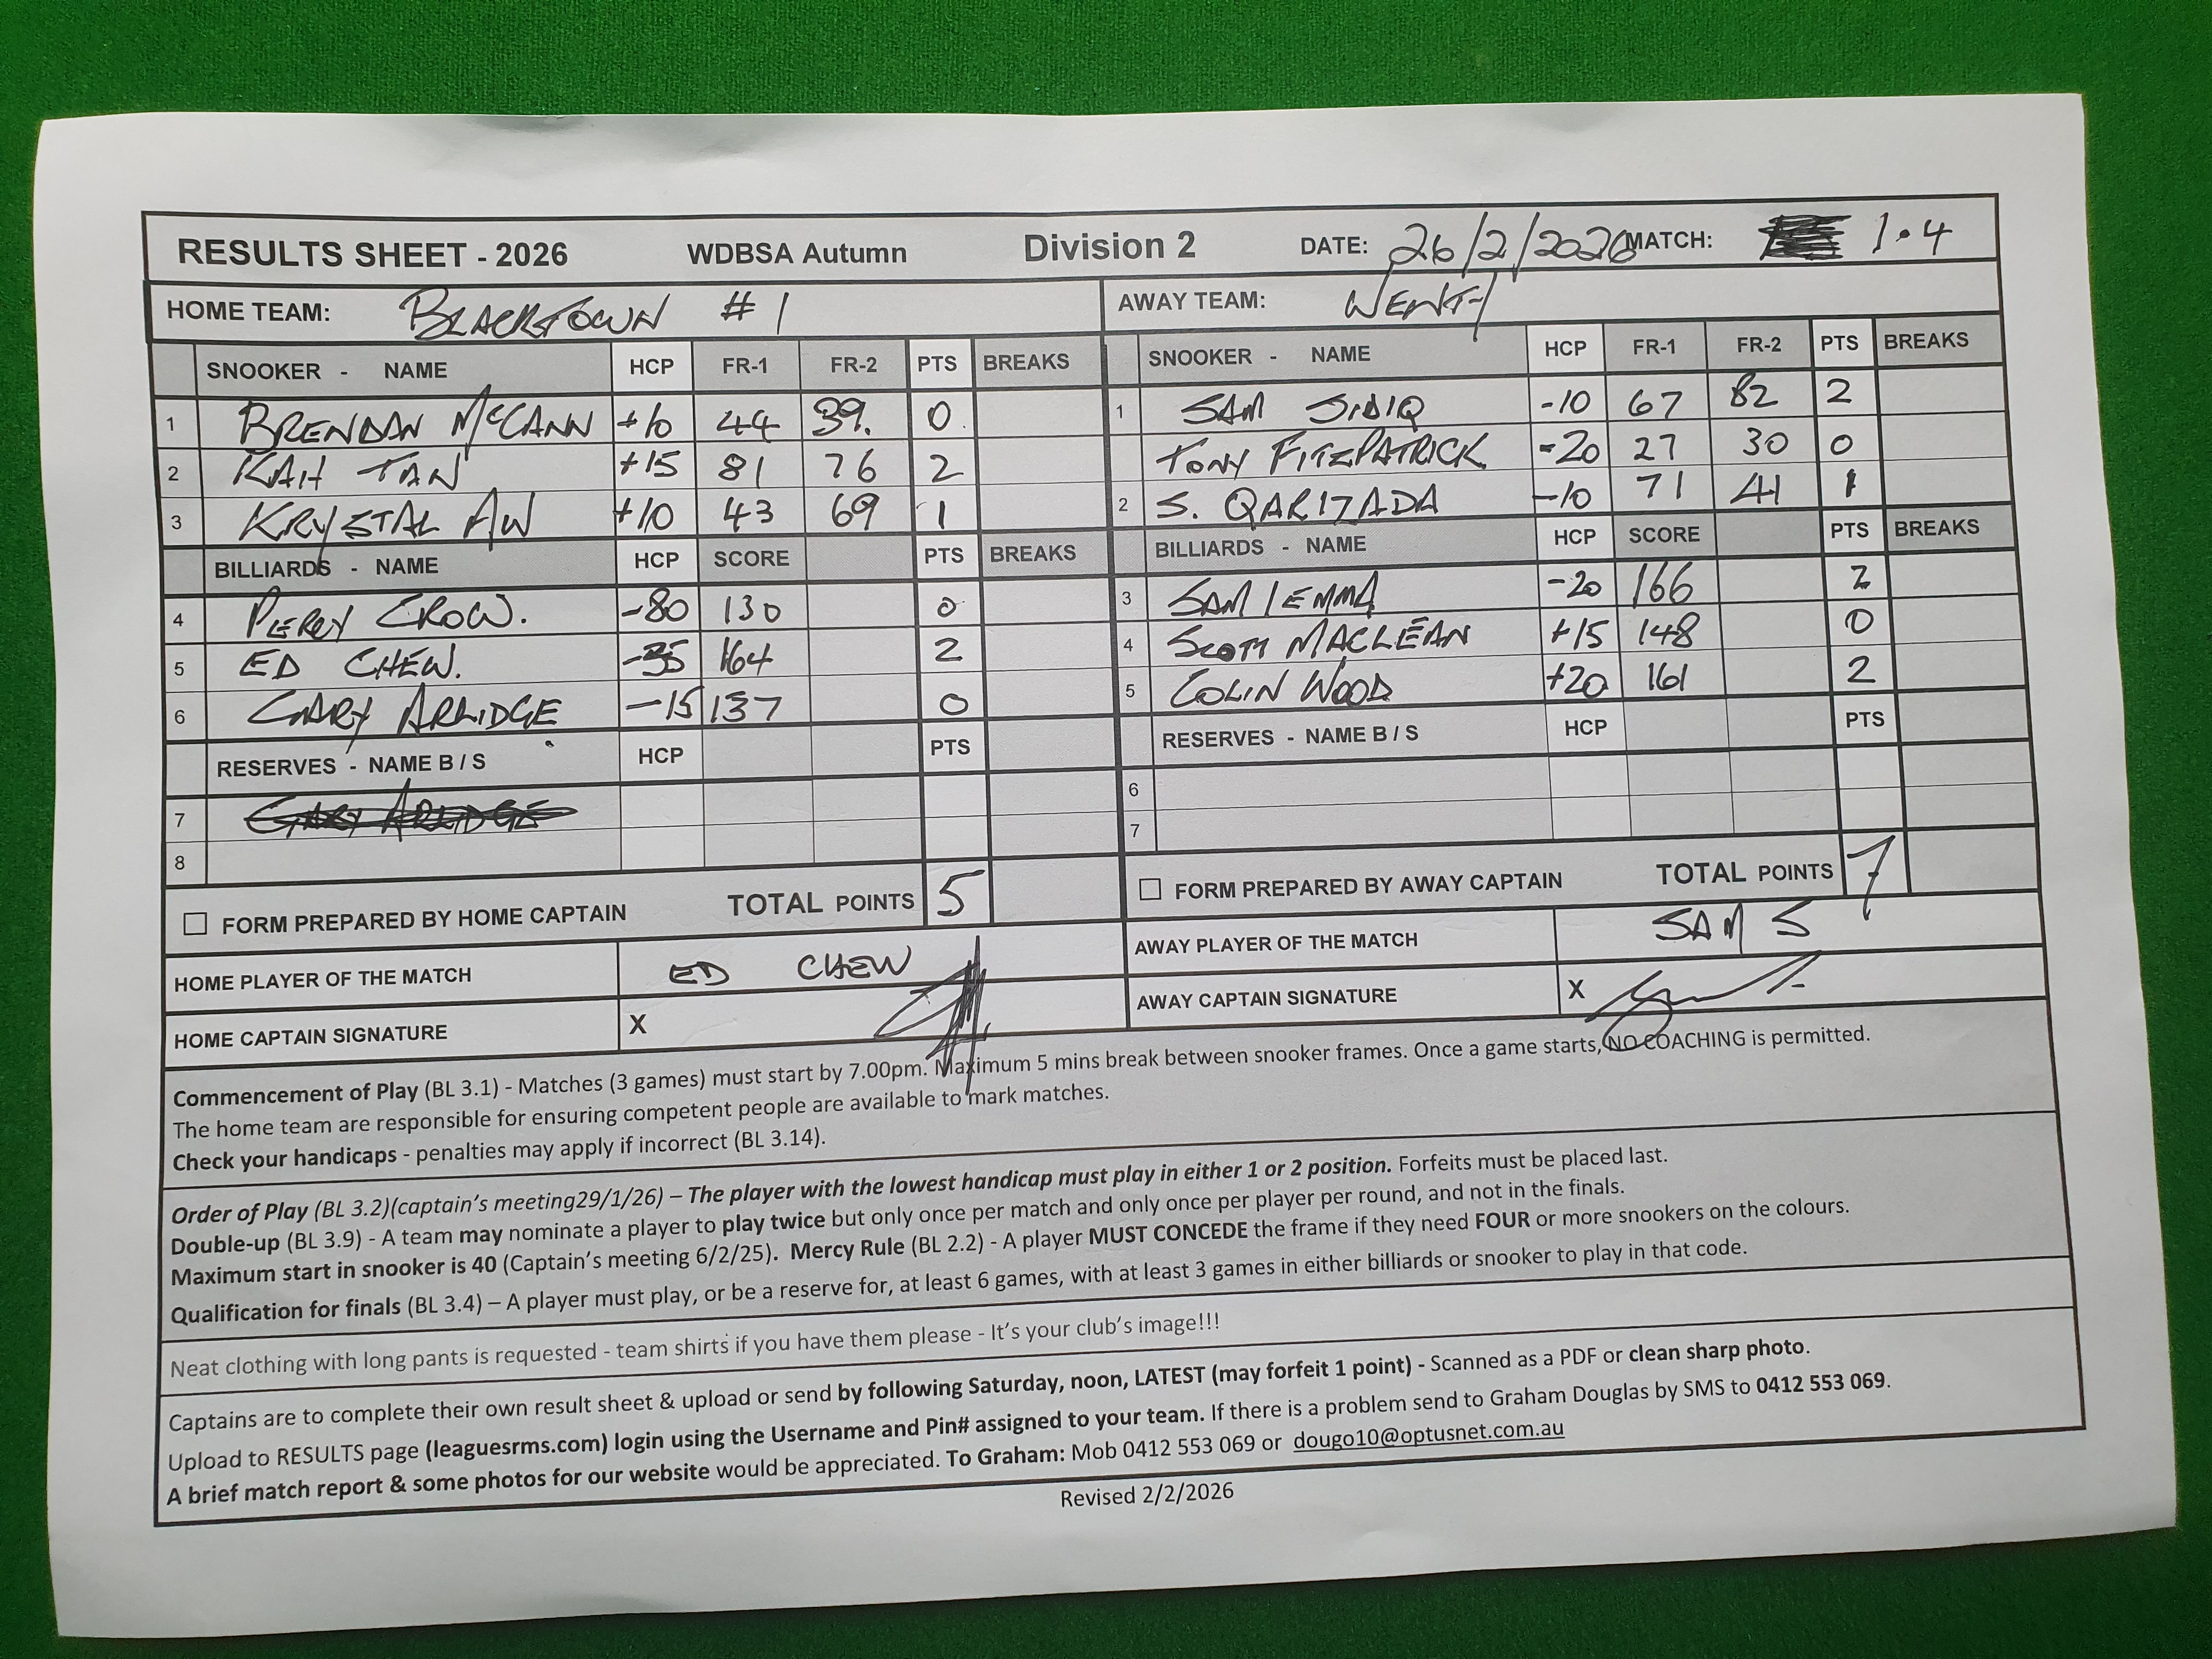 RESULTS SHEET - 2026 WDBSA Autumn Division 2 DATE: 26/2/2026 MATCH: 1.4
HOME TEAM: BLACKTOWN #1 AWAY TEAM: WENTY
SNOOKER - NAME HCP FR-1 FR-2 PTS BREAKS SNOOKER - NAME HCP FR-1 FR-2 PTS BREAKS
1 BRENDAN McCANN +10 44 39. 0 1 SAM SIDIQ -10 67 82 2
2 KAH TAN +15 81 76 2 TONY FITZPATRICK -20 27 30 0
3 KRYSTAL AW +10 43 69 1 2 S. QARIZADA -10 71 41 1
BILLIARDS - NAME HCP SCORE PTS BREAKS BILLIARDS - NAME HCP SCORE PTS BREAKS
4 PERRY CROW. -80 130 0 3 SAM IEMMA -20 166 2
5 ED CHEW. -35 164 2 4 SCOTT MACLEAN +15 148 0
6 GARY ARLIDGE -15 137 0 5 COLIN WOOD +20 161 2
RESERVES - NAME B / S HCP PTS RESERVES - NAME B / S HCP PTS
7 GARY ARLIDGE 6
8 7
FORM PREPARED BY HOME CAPTAIN TOTAL POINTS 5 FORM PREPARED BY AWAY CAPTAIN TOTAL POINTS 7
HOME PLAYER OF THE MATCH ED CHEW AWAY PLAYER OF THE MATCH SAM S
HOME CAPTAIN SIGNATURE X AWAY CAPTAIN SIGNATURE X
Commencement of Play (BL 3.1) - Matches (3 games) must start by 7.00pm. Maximum 5 mins break between snooker frames. Once a game starts, NO COACHING is permitted.
The home team are responsible for ensuring competent people are available to mark matches.
Check your handicaps - penalties may apply if incorrect (BL 3.14).
Order of Play (BL 3.2)(captain's meeting29/1/26) – The player with the lowest handicap must play in either 1 or 2 position. Forfeits must be placed last.
Double-up (BL 3.9) - A team may nominate a player to play twice but only once per match and only once per player per round, and not in the finals.
Maximum start in snooker is 40 (Captain's meeting 6/2/25). Mercy Rule (BL 2.2) - A player MUST CONCEDE the frame if they need FOUR or more snookers on the colours.
Qualification for finals (BL 3.4) – A player must play, or be a reserve for, at least 6 games, with at least 3 games in either billiards or snooker to play in that code.
Neat clothing with long pants is requested - team shirts if you have them please - It's your club's image!!!
Captains are to complete their own result sheet & upload or send by following Saturday, noon, LATEST (may forfeit 1 point) - Scanned as a PDF or clean sharp photo.
Upload to RESULTS page (leaguesrms.com) login using the Username and Pin# assigned to your team. If there is a problem send to Graham Douglas by SMS to 0412 553 069.
A brief match report & some photos for our website would be appreciated. To Graham: Mob 0412 553 069 or dougo10@optusnet.com.au
Revised 2/2/2026